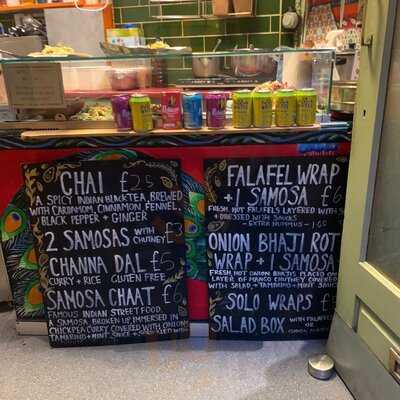 CHAI £2.5
A SPICY INDIAN BLACK TEA, BREWED
WITH CARDAMOM, CINNAMON, FENNEL,
BLACK PEPPER + GINGER
2 SAMOSAS WITH CHUTNEY £3
CHANNA DAL £5
CURRY + RICE GLUTEN FREE
SAMOSA CHAAT £6
FAMOUS INDIAN STREET FOOD.
A SAMOSA BROKEN UP IMMERSED IN
CHICKPEA CURRY COVERED WITH ONION
TAMARIND + MINT SAUCE +
FALAFEL WRAP
+ 1 SAMOSA £6
FRESH HOT FALAFELS LAYERED WITH
+ DRESSED WITH SAUCES
- EXTRA HUMMUS -
ONION BHAJI ROT
WRAP + 1 SAMOSA
FRESH HOT ONION BHAJIS PLACED ON
LAYER OF MANGO CHUTNEY COVERED
WITH SALAD, + TAMARIND + MINT SAUCE
SOLO WRAPS £
SALAD BOX WITH FALAFEL
OR